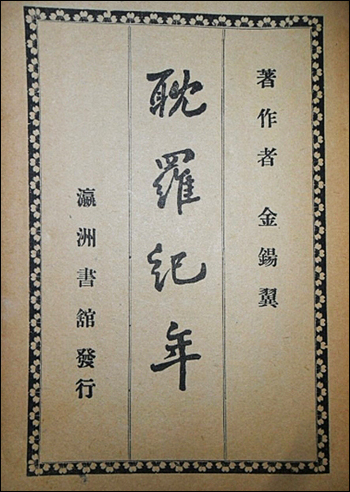 著作者 金錫翼
耽羅紀年
瀛洲書館發行